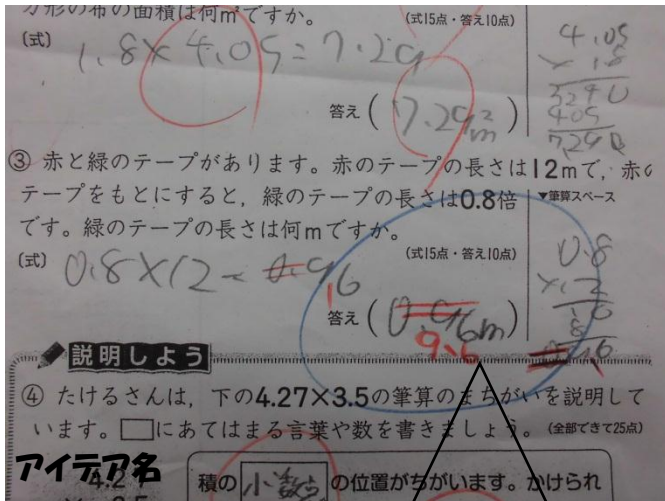 方形の布の面積は何m²ですか。
(式15点・答え10点)
〔式〕 1.8×4.05=7.29
4.05
× 1.8
3240
405
7.290
答え ( 7.29m² )
③ 赤と緑のテープがあります。赤のテープの長さは12mで、赤の
テープをもとにすると、緑のテープの長さは0.8倍
▼筆算スペース
です。緑のテープの長さは何mですか。
(式15点・答え10点)
〔式〕 0.8×12=0.96
0.8
答え ( 0.96m )
9.6
説明しよう
④ たけるさんは、下の4.27×3.5の筆算のまちがいを説明して
います。□にあてはまる言葉や数を書きましょう。(全部できて25点)
アイデア名
積の 小数点 の位置がちがいます。かけられ